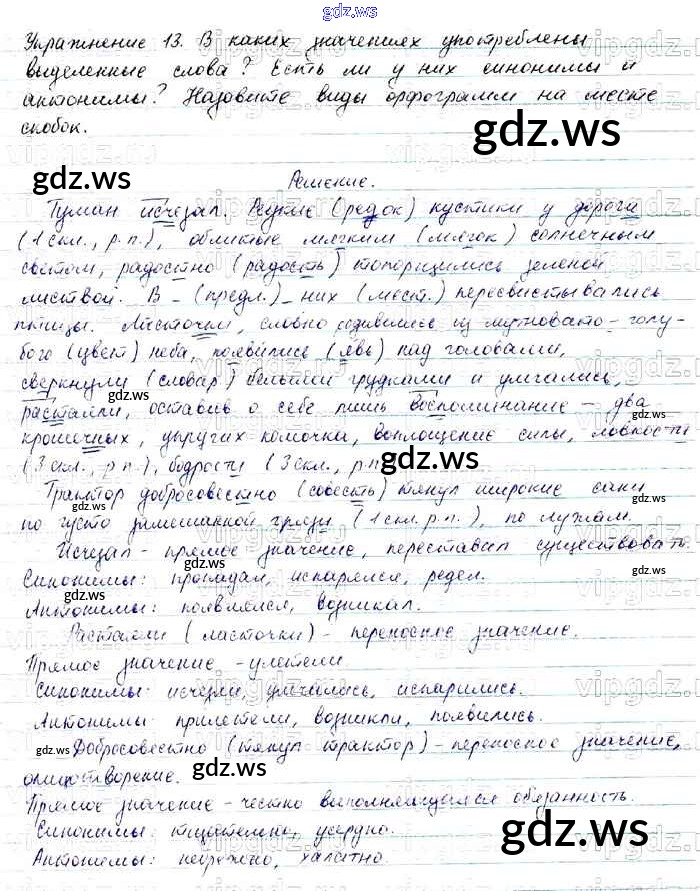 gdz.ws
Упражнение 13. В каких значениях употреблены
выделенные слова? Есть ли у них синонимы и
антонимы? Назовите виды орфограмм на месте
скобок.
gdz.ws
gdz.ws
Решение.
Туман исчезал. Редкие (редок) кустики у дороги
(1 скл., р.п.), облитые мягким (мягок) солнечным
светом, радостно (радость) топорщились зеленой
листвой. В - (предл.) - них (мест.) пересвистывались
птицы. Ласточки, словно родившиеся из мутновато-голу-
бого (цвет) неба, появились (явь) над головами,
сверкнули (словар) белыми грудками и умчались,
gdz.ws
растаяли, оставив о себе лишь воспоминание - два
gdz.ws
крошечных, упругих комочка, воплощение силы, ловкости
(3 скл., р.п.), бодрости (3 скл., р.п
gdz.ws
Трактор добросовестно (совесть) тянул широкие сани
gdz.ws
по густо замешанной грязи (1 скл. р.п.), по лужам.
Исчезал - прямое значение, переставал существовать.
Синонимы: пропадал, испарялся, редел.
gdz.ws
gdz.ws
Антонимы: появлялся, возникал.
Растаяли (ласточки) - переносное значение.
Прямое значение - улетели
Синонимы: исчезли, умчались, испарились.
Антонимы: прилетели, возникли, появились.
gdz.ws
Добросовестно (тянул трактор) - переносное значение,
gdz.ws
gdz.ws
олицетворение.
Прямое значение - честно выполняющий обязанность.
Синонимы: тщательно, усердно.
gdz.ws
gdz.ws
Антонимы: небрежно, халатно.